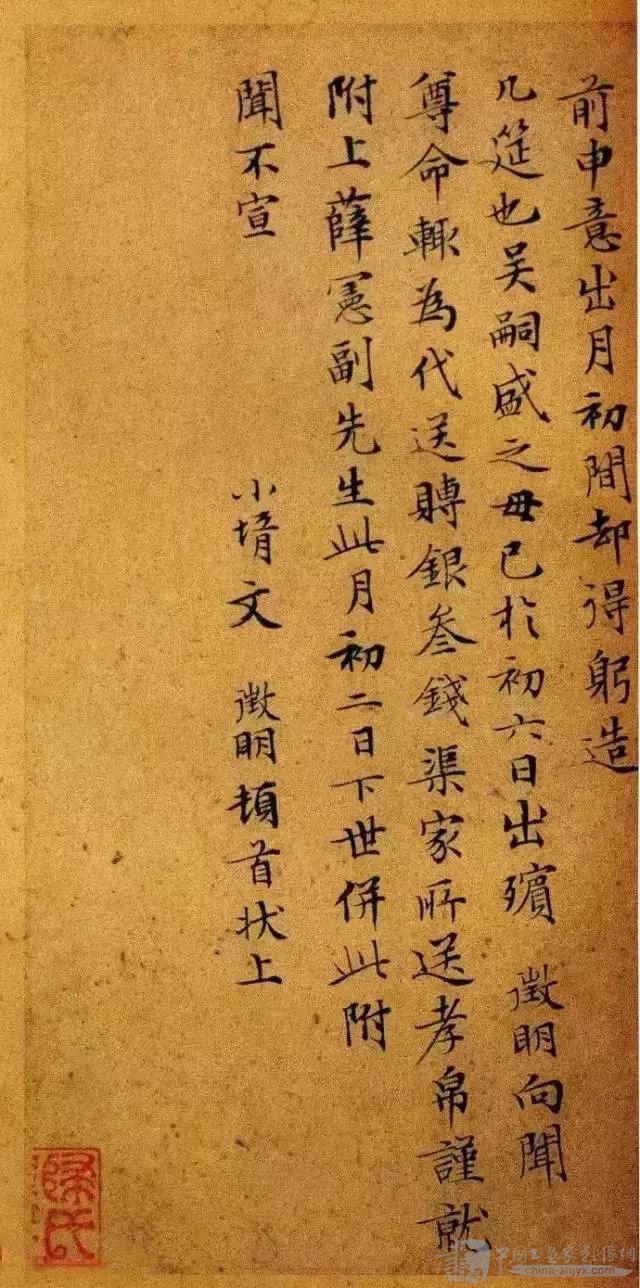 前申意出月初間却得躬造
几筵也吴嗣盛之毋已於初六日出殯 徵明向聞
尊命輙為代送賻銀叄錢渠家所送孝帛謹就
附上薛憲副先生此月初二日下世併此附
聞不宣
小壻文 徵明頓首状上
中国工艺家影像网
www.cn-shjyx.com